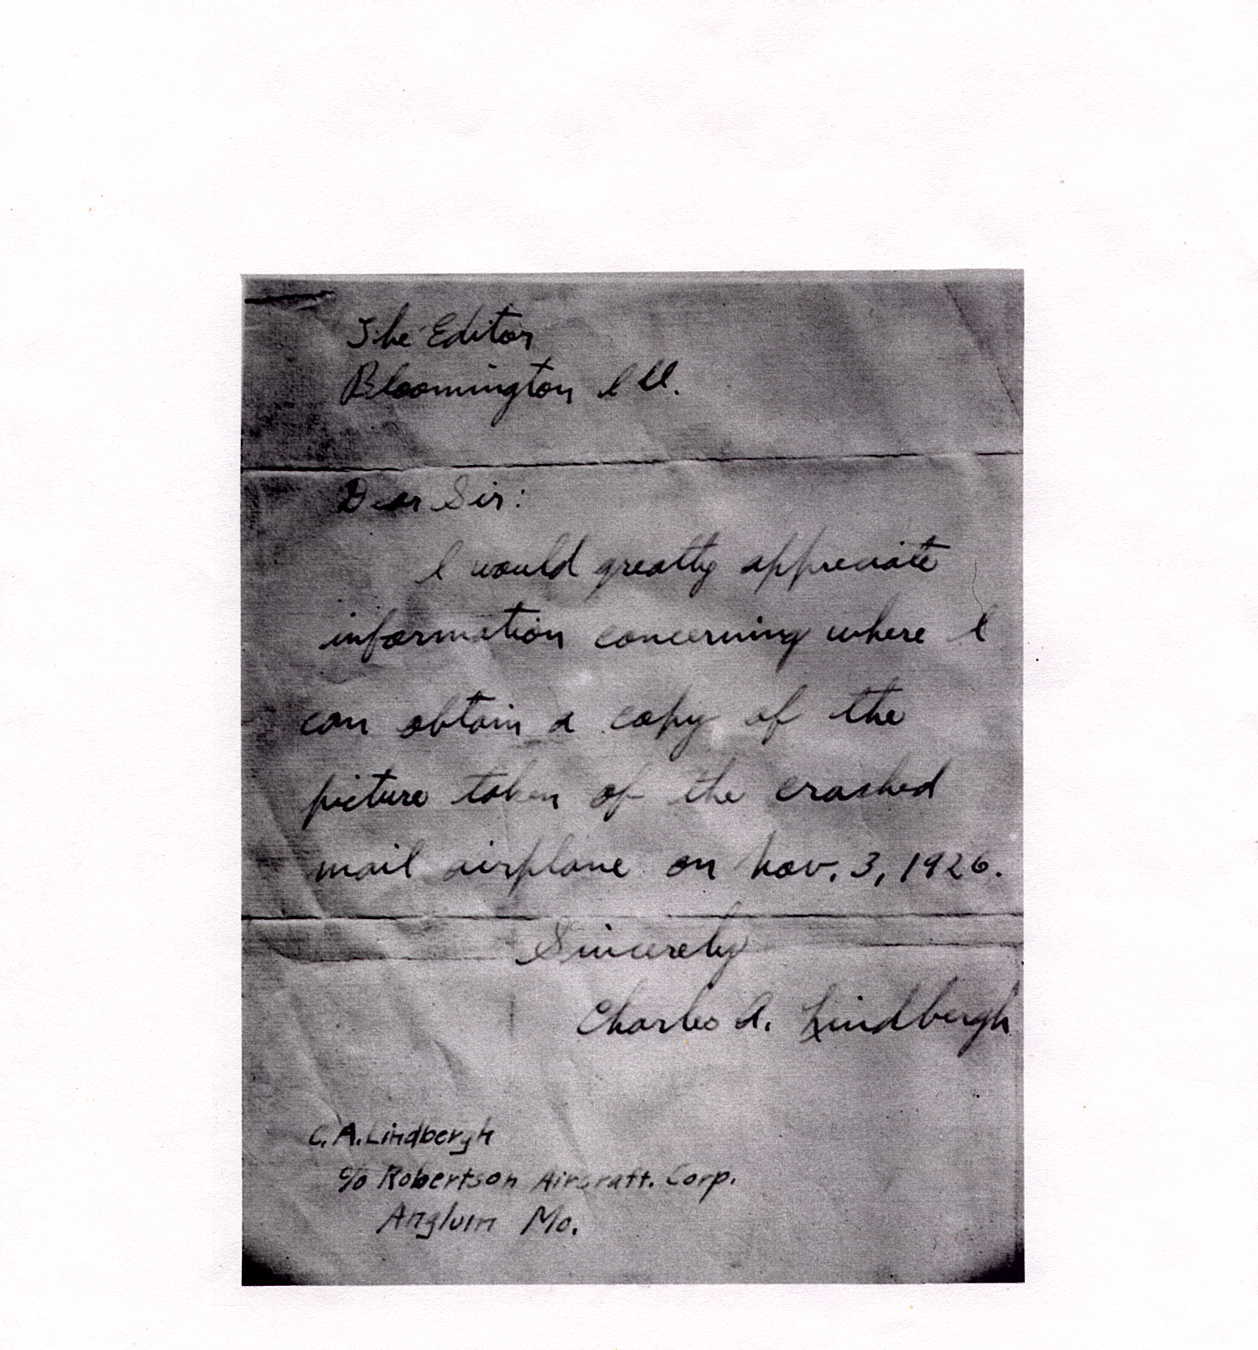 The Editor
Bloomington Ill.
Dear Sir:
I would greatly appreciate
information concerning where I
can obtain a copy of the
picture taken of the crashed
mail airplane on Nov. 3, 1926.
Sincerely
Charles A. Lindbergh
C. A. Lindbergh
c/o Robertson Aircraft. Corp.
Anglum Mo.